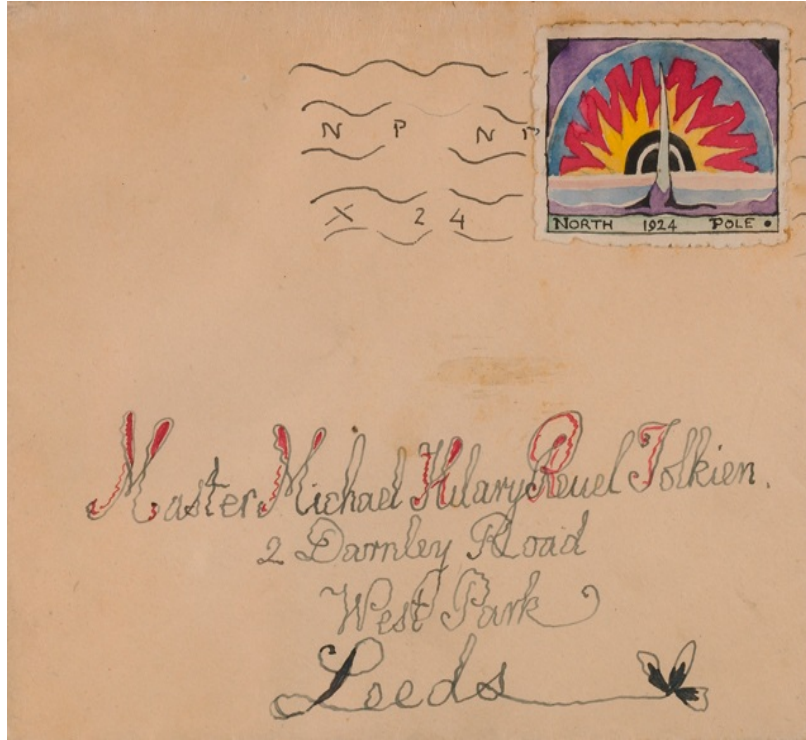 N P N P
X 24
NORTH 1924 POLE •
Master Michael Hilary Reuel Tolkien.
2 Darnley Road
West Park
Leeds